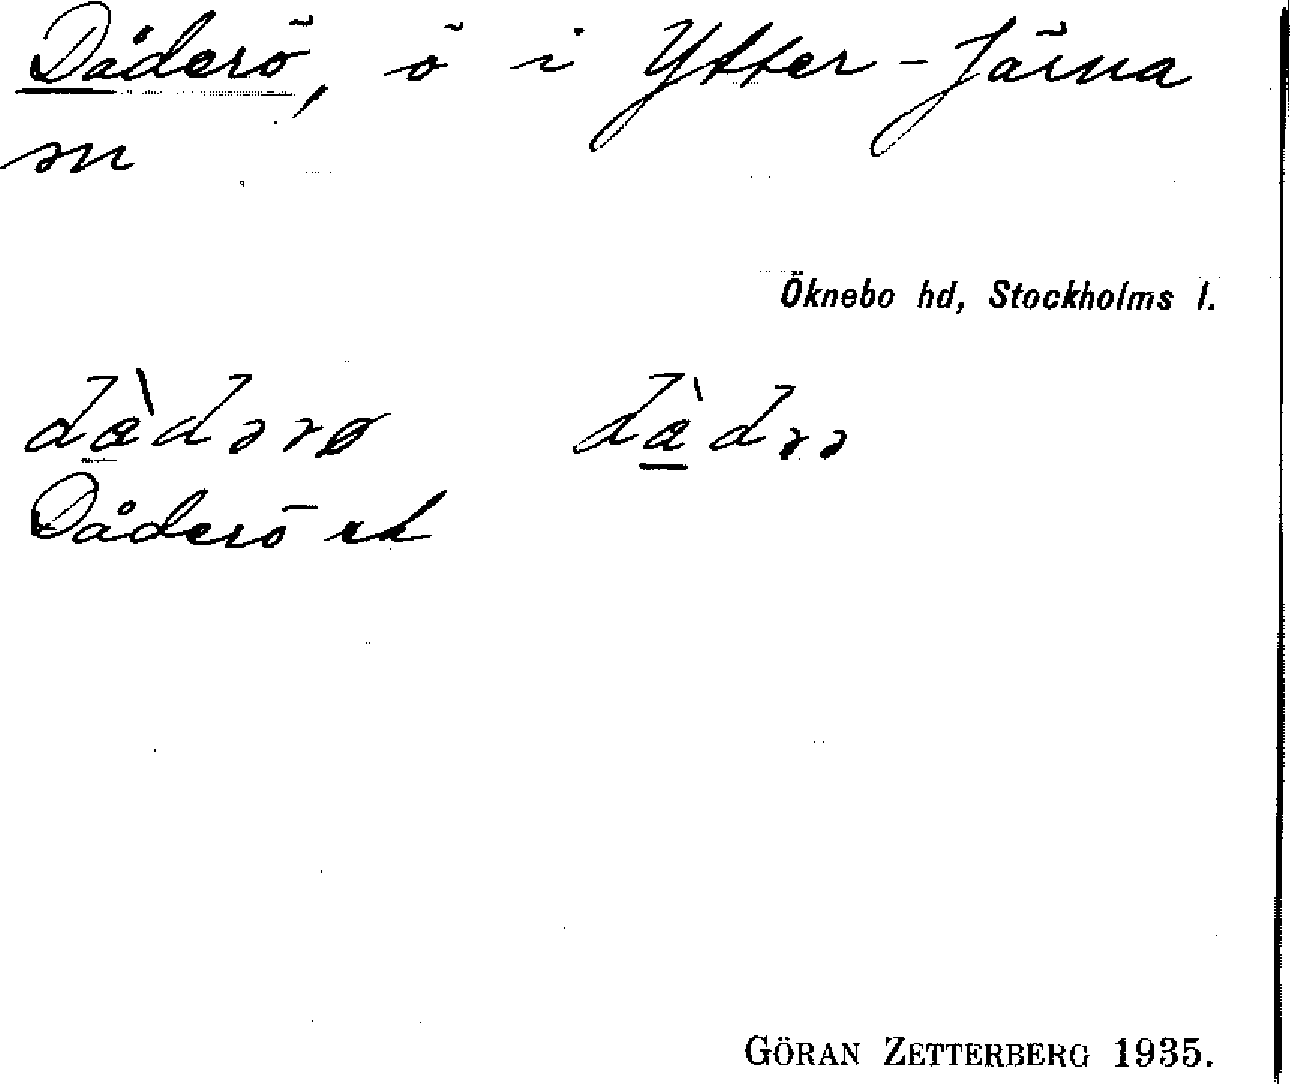 Dåderö, ö i Ytter-Järna
sn
Öknebo hd, Stockholms l.
dàdərø dàdərə
Dåderö ek
GÖRAN ZETTERBERG 1935.